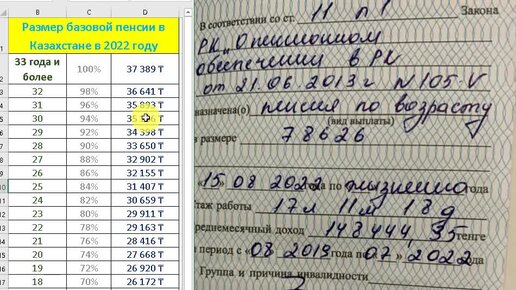 B
C
D
Размер базовой пенсии в
Казахстане в 2022 году
33 года и более 100% 37 389 ₸
32 98% 36 641 ₸
31 96% 35 893 ₸
30 94%
29 92% 34 398 ₸
28 90% 33 650 ₸
27 88% 32 902 ₸
26 86% 32 155 ₸
25 84% 31 407 ₸
24 82% 30 659 ₸
23 80% 29 911 ₸
22 78% 29 163 ₸
21 76% 28 416 ₸
20 74% 27 668 ₸
19 72% 26 920 ₸
18 70% 26 172 ₸
В соответствии со ст. 11 п 1 Закона
РК "О пенсионном
обеспечении в РК
от 21.06.2013г N105-V
назначена(о) пенсия по возрасту
(вид выплаты)
в размере 78626
"15" 08 2022 года по пожизненно года
Стаж работы 17л 11м 18д
реднемесячный доход 148444,35 тенге
период с "08 2019 года по 07" 2022
Группа и причина инвалидности